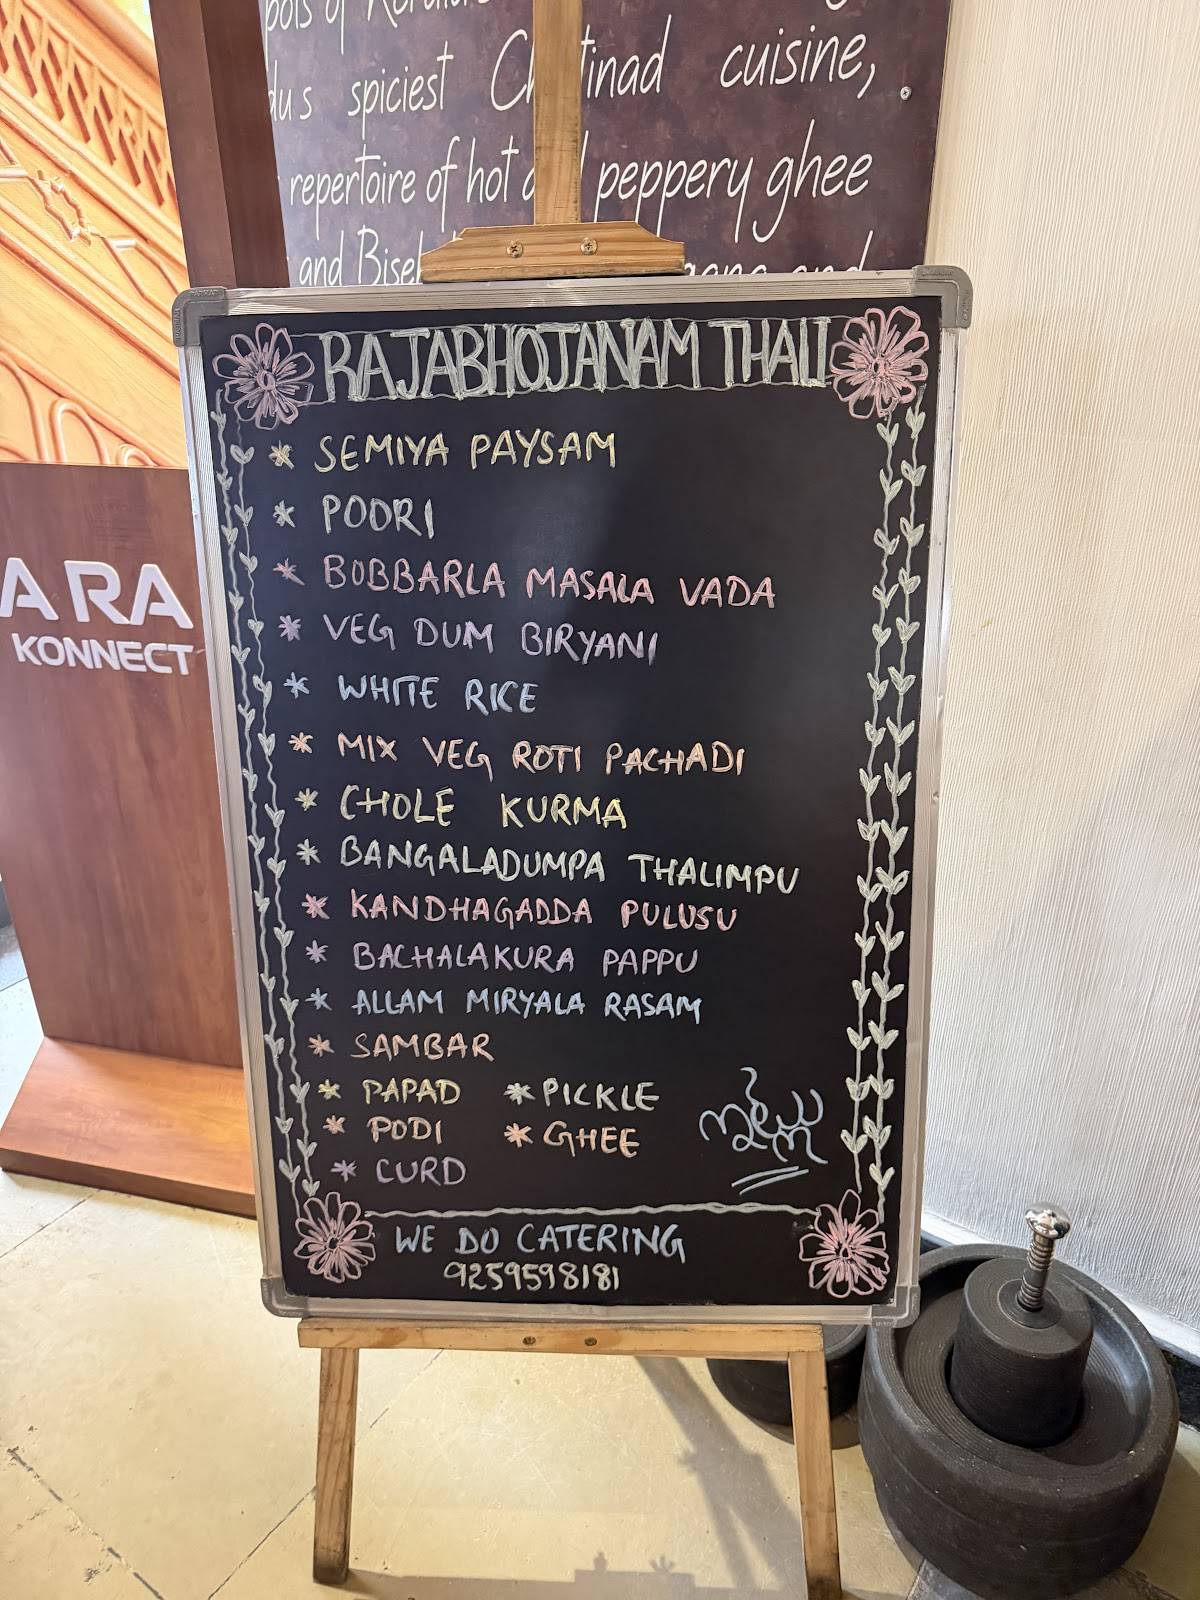 pots of
du's spiciest tinad cuisine,
repertoire of hot peppery ghee
and
RAJABHOJANAM THALI
* SEMIYA PAYSAM
* POORI
* BOBBARLA MASALA VADA
* VEG DUM BIRYANI
* WHITE RICE
* MIX VEG ROTI PACHADI
* CHOLE KURMA
* BANGALADUMPA THALIMPU
* KANDHAGADDA PULUSU
* BACHALAKURA PAPPU
* ALLAM MIRYALA RASAM
* SAMBAR
* PAPAD * PICKLE
* PODI * GHEE
* CURD
WE DO CATERING
9259598181
ARA
KONNECT